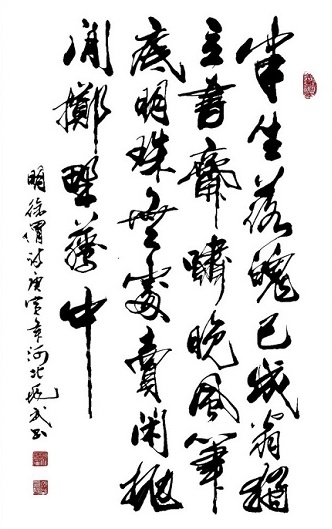 半生落魄已成翁獨
立書齋嘯晚風筆
底明珠無處賣閑拋
閑擲野藤中
明徐渭詩庚寅年河北武書